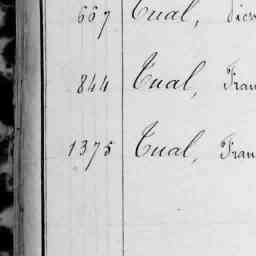 667 Tual,
844 Tual, Fran
1375 Tual, Fran